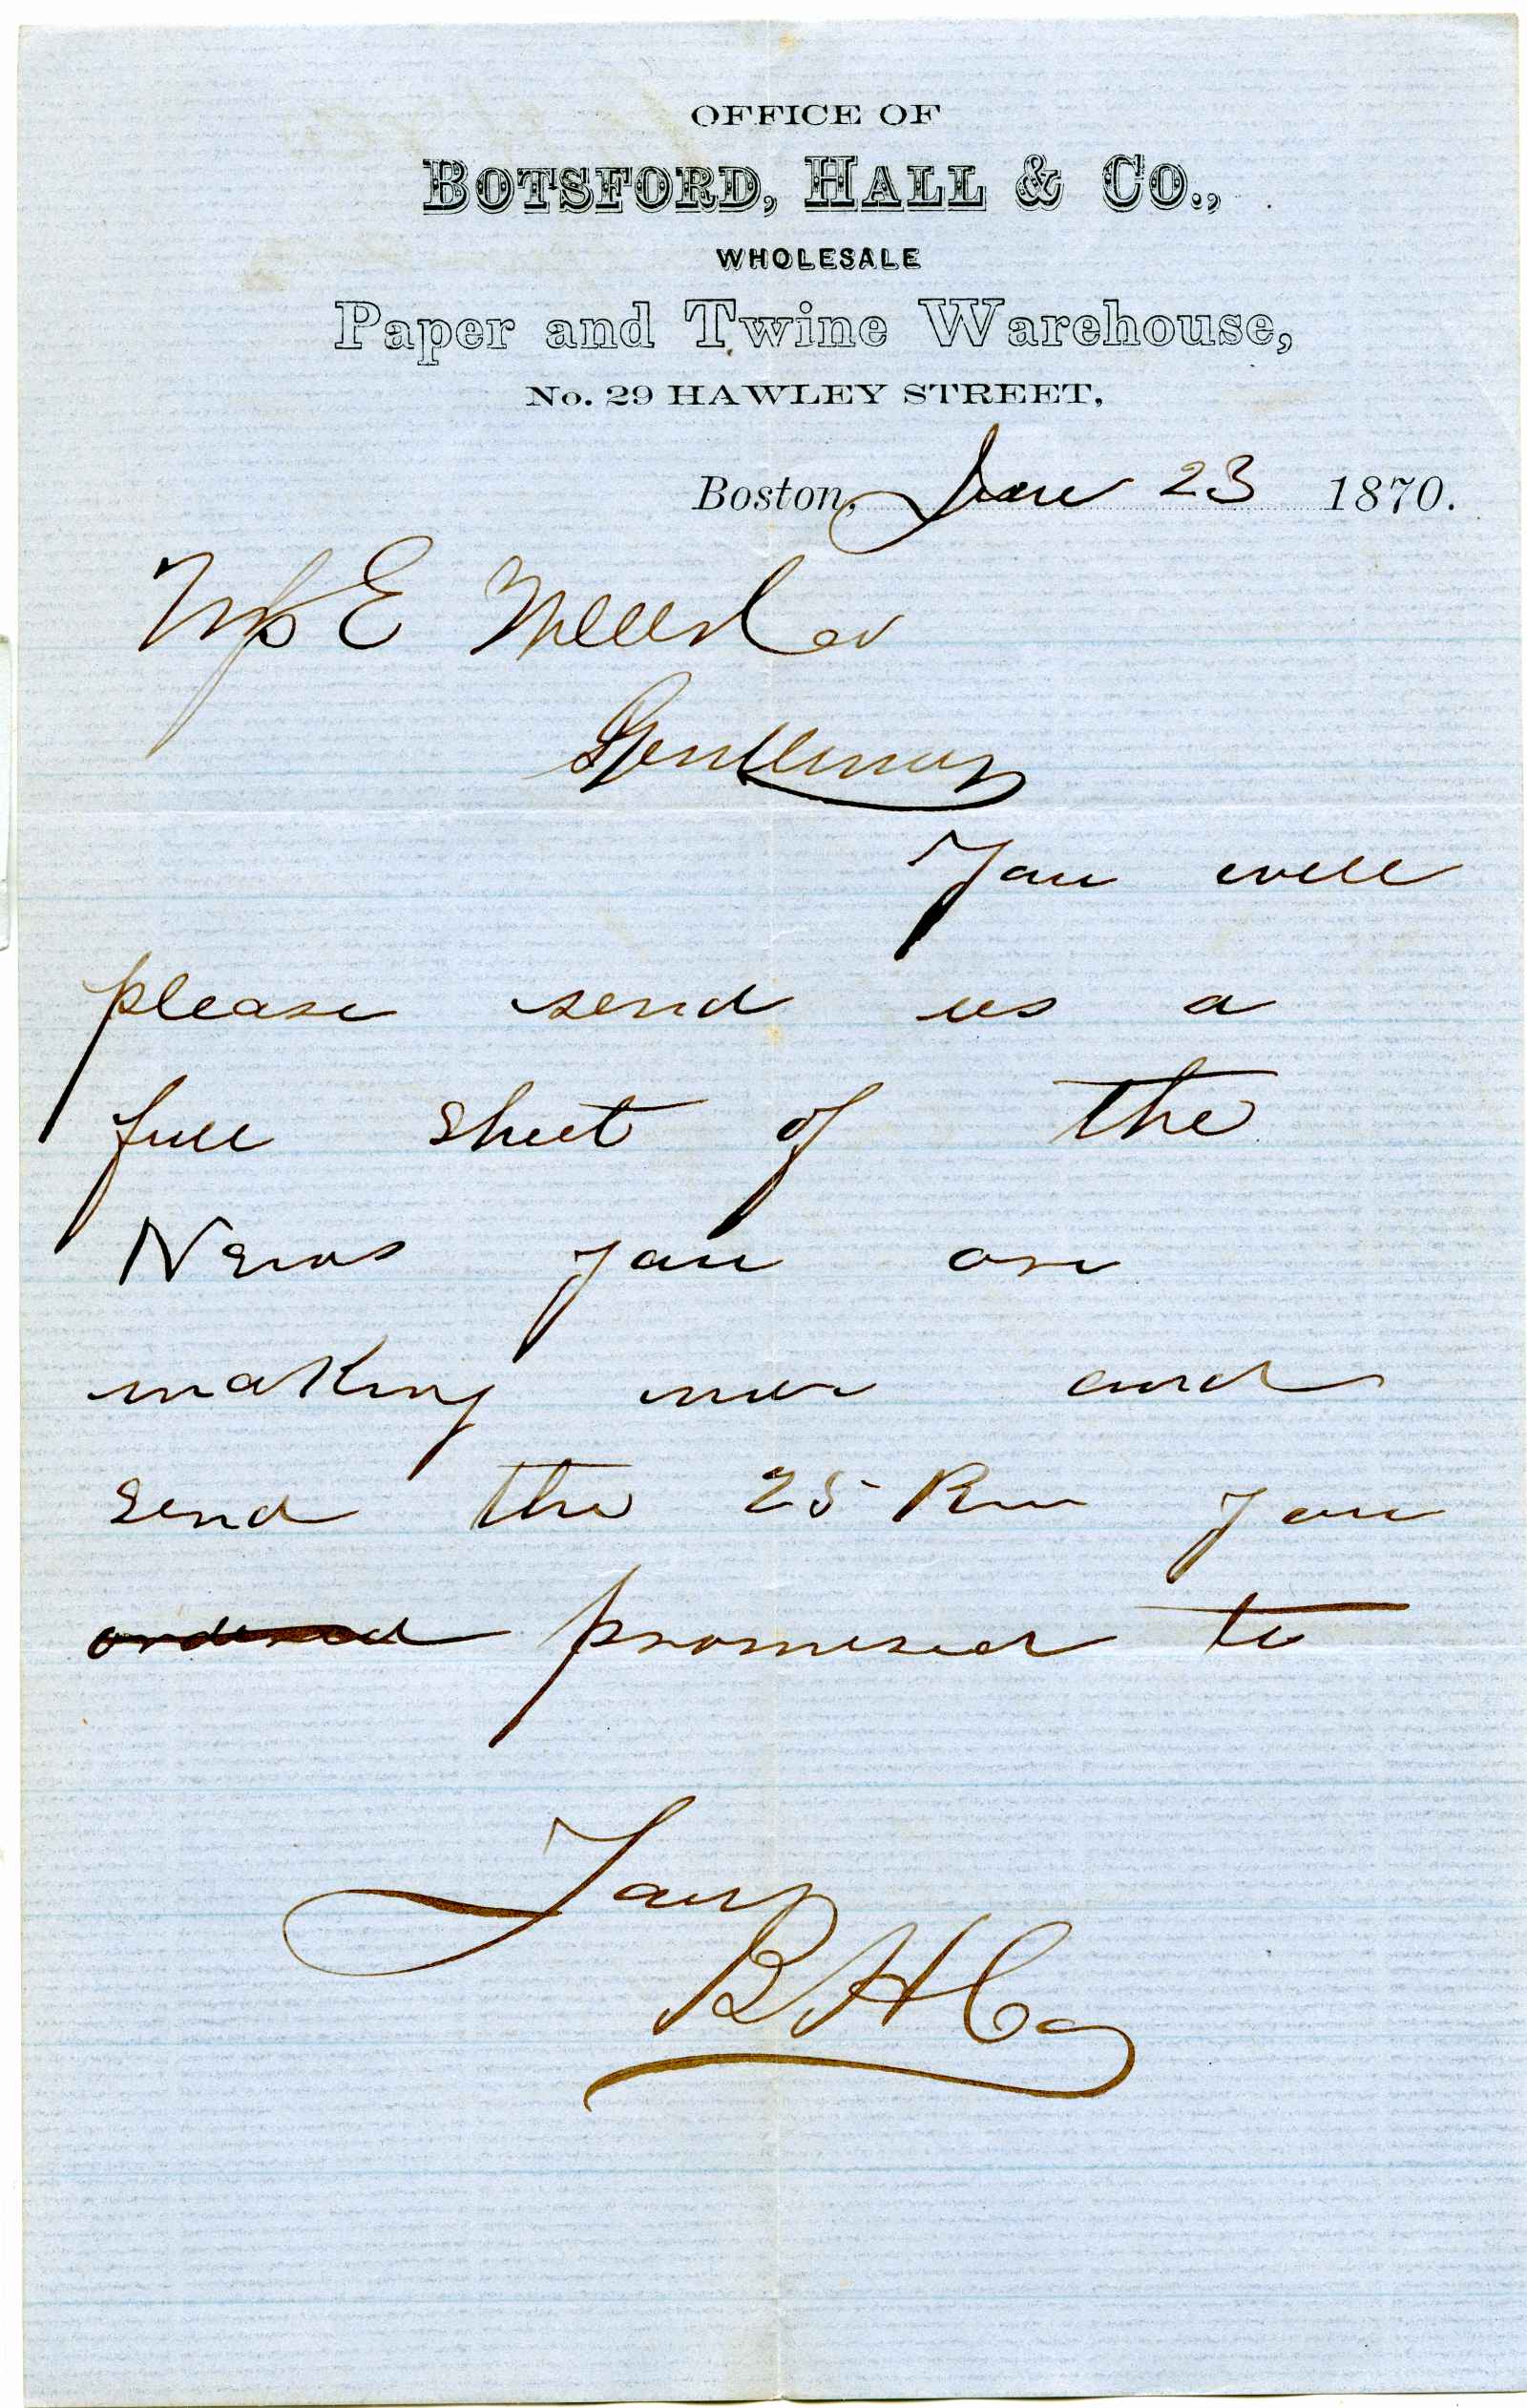 OFFICE OF
BOTSFORD, HALL & CO.,
WHOLESALE
Paper and Twine Warehouse,
No. 29 HAWLEY STREET,
Boston, June 23 1870.
E
Gentlemen
You will
please send us a
full sheet of the
News you are
making now and
send the 25 Rm you
ordered promised to
Yours
B H Co